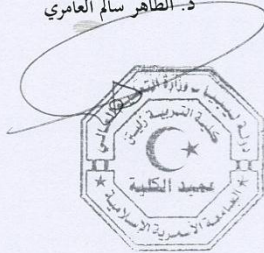 د. الطاهر سالم العامري
دولة ليبيا - وزارة التعليم العالي
كلية التربية زليتن
عميد الكلية
الجامعة الأسمرية الإسلامية